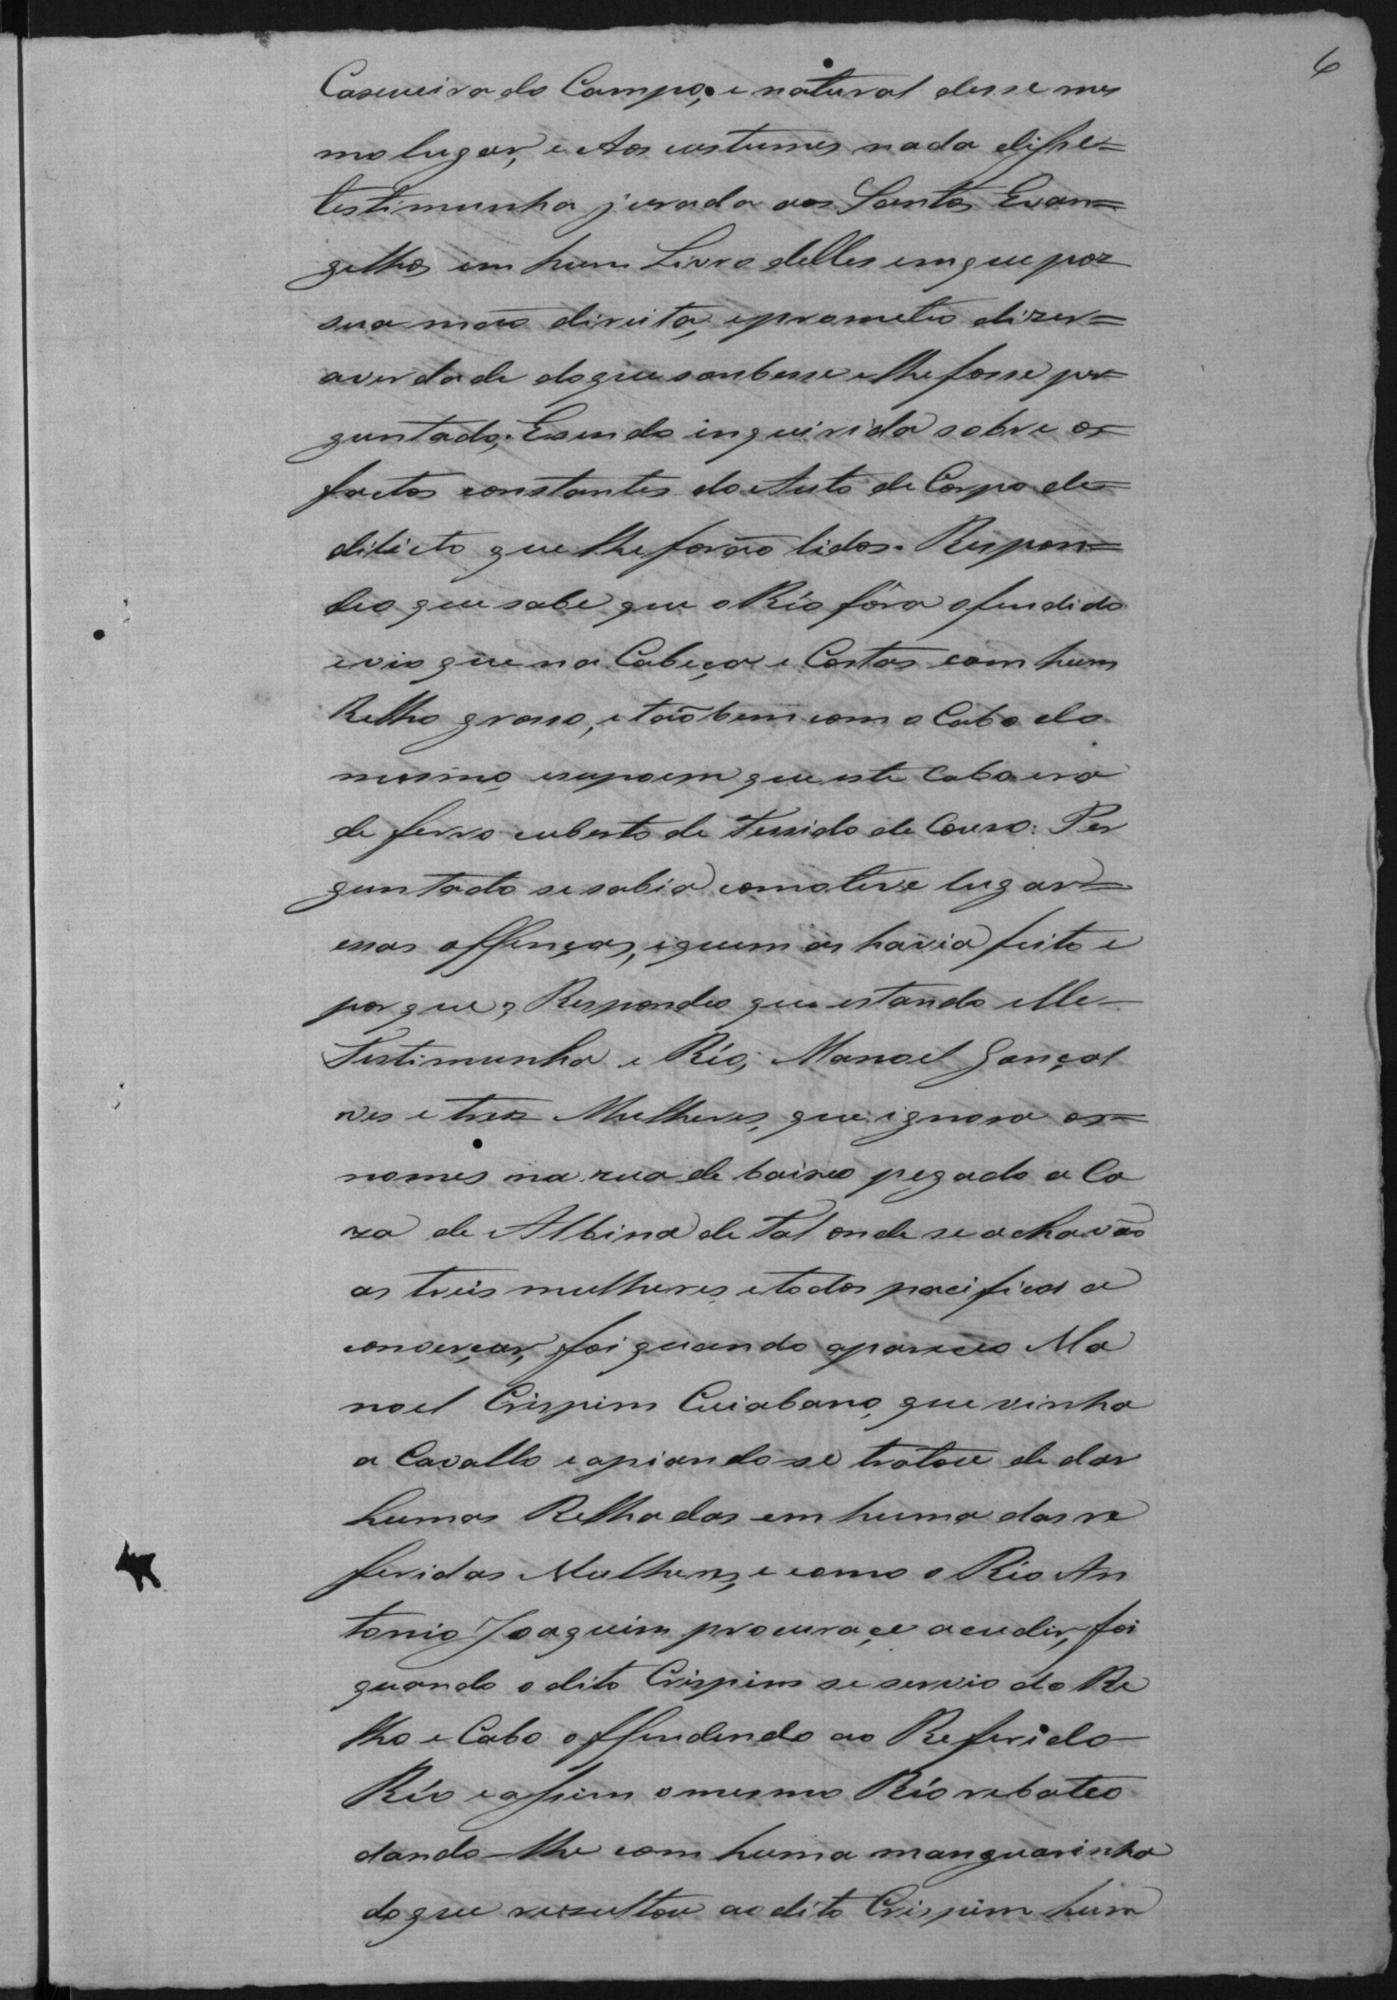 6
Caxueira do Campo, e natural desse mes
mo lugar, e Aos custumes nada disse=
testimunha jurada aos Santos Evan=
gelhos em hum Livro delles em que poz
sua mão direita, e prometeo dizer=
averdade doque soubesse e lhe fosse per=
guntado; Esendo inquirida sobre os=
factos constantes do Auto de Corpo de=
dilicto que lhe forão lidos. Respon=
deo que sabe que o Réo fôra ofendido
e vio que na Cabeça e Costas com hum
Relho grosso, e tãobem com o Cabo do
mesmo, e supoem que este Cabo era
de ferro cuberto de Tessido de Couro: Per
guntado se sabia como teve lugar=
essas offenças, e quem as havia feito e
por que; Respondeo que estando elle
Testimunha e Réo, Manoel Gonçal
ves e trez Mulheres, que ignora os=
nomes na rua de baixo pegado a Ca
za de Albina de tal onde se achavão
as treis mulheres, e todos pacificos a
converçar, foi quando apareceo Ma
noel Crispim Cuiabano, que vinha
a Cavallo e apiando-se tratou de dar
humas Relhadas em huma das re
feridas Mulheres, e como o Réo An
tonio Joaquim procuraçe acudir, foi
quando o dito Crispim se servio do Re
lho e Cabo offendendo ao Referido
Réo e assim o mesmo Réo rebateo
dando-lhe com huma manguarinha
do que rezultou ao dito Crispim hum